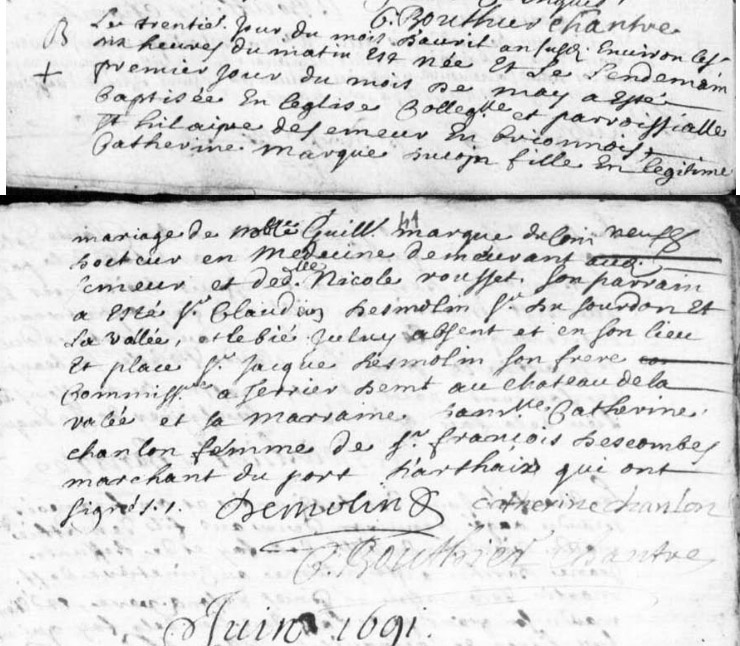 C. Bouthier chantre
B Le trentie. jour du mois d'avril an susd. Environ les
six heures du matin est née et le lendemain
+ premier jour du mois de may a esté
Baptisée En leglise Collegle et parroissialle
St hilaire de semeur En brionnois
Catherine marque ducoin fille En legitime
41
mariage de noble Guill. marque du Coin
docteur en Medecine demeurant aud.
semeur et de d.lle Nicole rousset, son parrain
a Esté sr. Claude desmolin sr. du sourdon Et
La vallée, et absent et en son lieu
Et place sr. jacque desmolin son frere
Commiss.re a Terrier demt au chateau de la
valée et sa marraine dam.lle Catherine
chanlon femme de sr françois Descombes
marchant du port d'arthaix qui ont
signés. Demolin Catherine chanlon
C. Bouthier Chantre
Juin 1691.